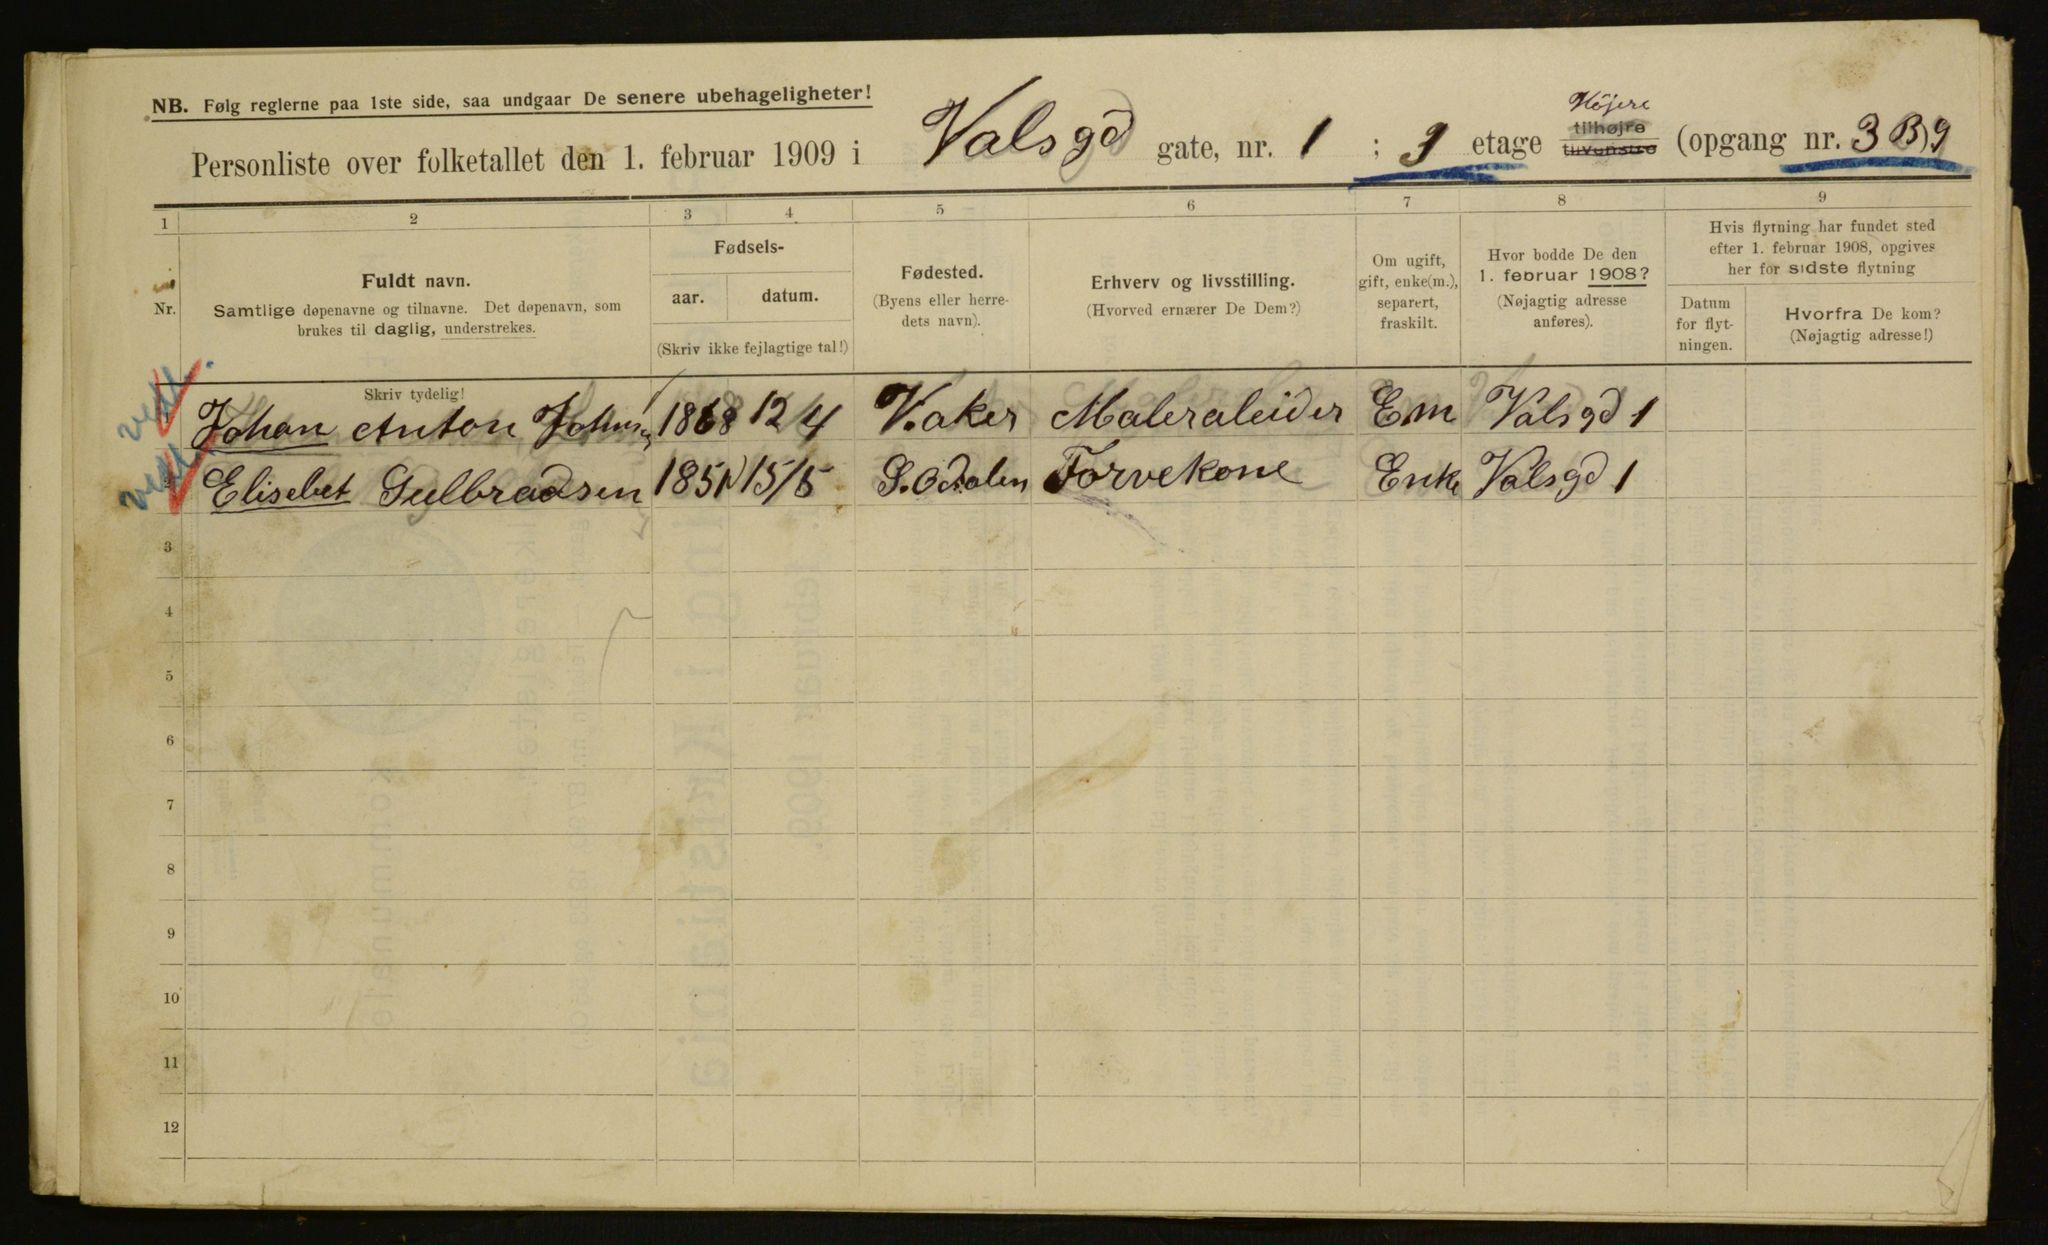 NB. Følg reglerne paa 1ste side, saa undgaar De senere ubehageligheter!
Højere
Personliste over folketallet den 1. februar 1909 i Valsgd gate, nr. 1 ; 3 etage tilhøjre tilvenstre (opgang nr. 3 B)9
1 2 3 4 5 6 7 8 9
Nr.
Fuldt navn.
Samtlige døpenavne og tilnavne. Det døpenavn, som
brukes til daglig, understrekes.
Fødsels-
aar. datum.
(Skriv ikke fejlagtige tal!)
Fødested.
(Byens eller herre-
dets navn).
Erhverv og livsstilling.
(Hvorved ernærer De Dem?)
Om ugift,
gift, enke(m.),
separert,
fraskilt.
Hvor bodde De den
1. februar 1908?
(Nøjagtig adresse
anføres).
Hvis flytning har fundet sted
efter 1. februar 1908, opgives
her for sidste flytning
Datum
for flyt-
ningen.
Hvorfra De kom?
(Nøjagtig adresse!)
Skriv tydelig!
Johan Anton Johns 1868 12 4 V. aker Maleraleider Em Valsgd 1
Elisebet Gulbradsen 1851 15/5 S. Odalen Torvekone Enke Valsgd 1
3
4
5
6
7
8
9
10
11
12